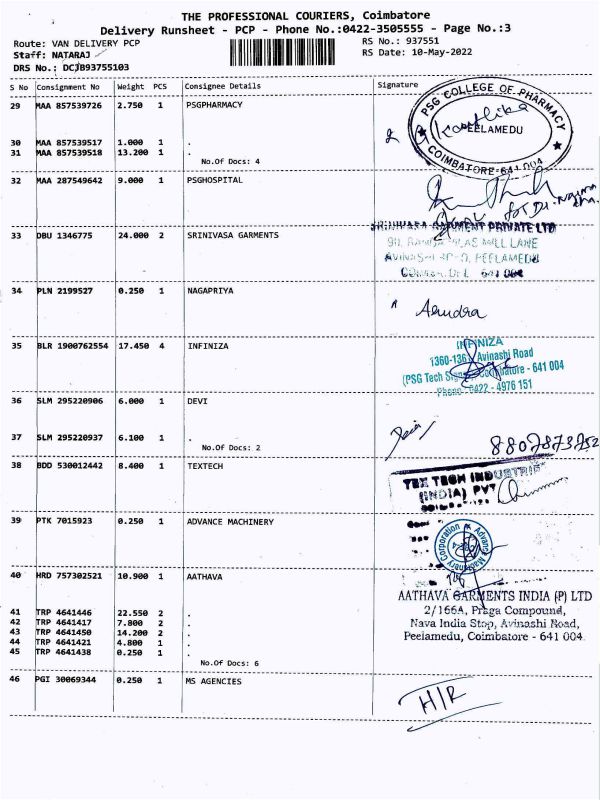 THE PROFESSIONAL COURIERS, Coimbatore
Delivery Runsheet - PCP - Phone No.:0422-3505555 - Page No.:3
Route: VAN DELIVERY PCP
RS No.: 937551
Staff: NATARAJ
RS Date: 10-May-2022
DRS No.: DCJB93755103
S No Consignment No Weight PCS Consignee Details Signature
29 MAA 857539726 2.750 1 PSGPHARMACY
PSG COLLEGE OF PHARMACY
PEELAMEDU
COIMBATORE-641 004
30 MAA 857539517 1.000 1 .
31 MAA 857539518 13.200 1 .
No.Of Docs: 4
32 MAA 287549642 9.000 1 PSGHOSPITAL
SRINIVASA GARMENT PRIVATE LTD
33 DBU 1346775 24.000 2 SRINIVASA GARMENTS
MILL LANE
PEELAMEDU
34 PLN 2199527 0.250 1 NAGAPRIYA
35 BLR 1900762554 17.450 4 INFINIZA
INFINIZA
1360-136 Avinashi Road
(PSG Tech Coimbatore - 641 004
Phone: 0422 - 4976 151
36 SLM 295220906 6.000 1 DEVI
37 SLM 295220937 6.100 1 .
No.Of Docs: 2
8807873752
38 BDD 530012442 8.400 1 TEXTECH
TEX TECH INDUSTRIES
(INDIA) PVT
39 PTK 7015923 0.250 1 ADVANCE MACHINERY
Advance Machinery Corporation
40 HRD 757302521 10.900 1 AATHAVA
AATHAVA GARMENTS INDIA (P) LTD
2/166A, Praga Compound,
Nava India Stop, Avinashi Road,
Peelamedu, Coimbatore - 641 004.
41 TRP 4641446 22.550 2 .
42 TRP 4641417 7.800 2 .
43 TRP 4641450 14.200 2 .
44 TRP 4641421 4.800 1 .
45 TRP 4641438 0.250 1 .
No.Of Docs: 6
46 PGI 30069344 0.250 1 MS AGENCIES
H/R